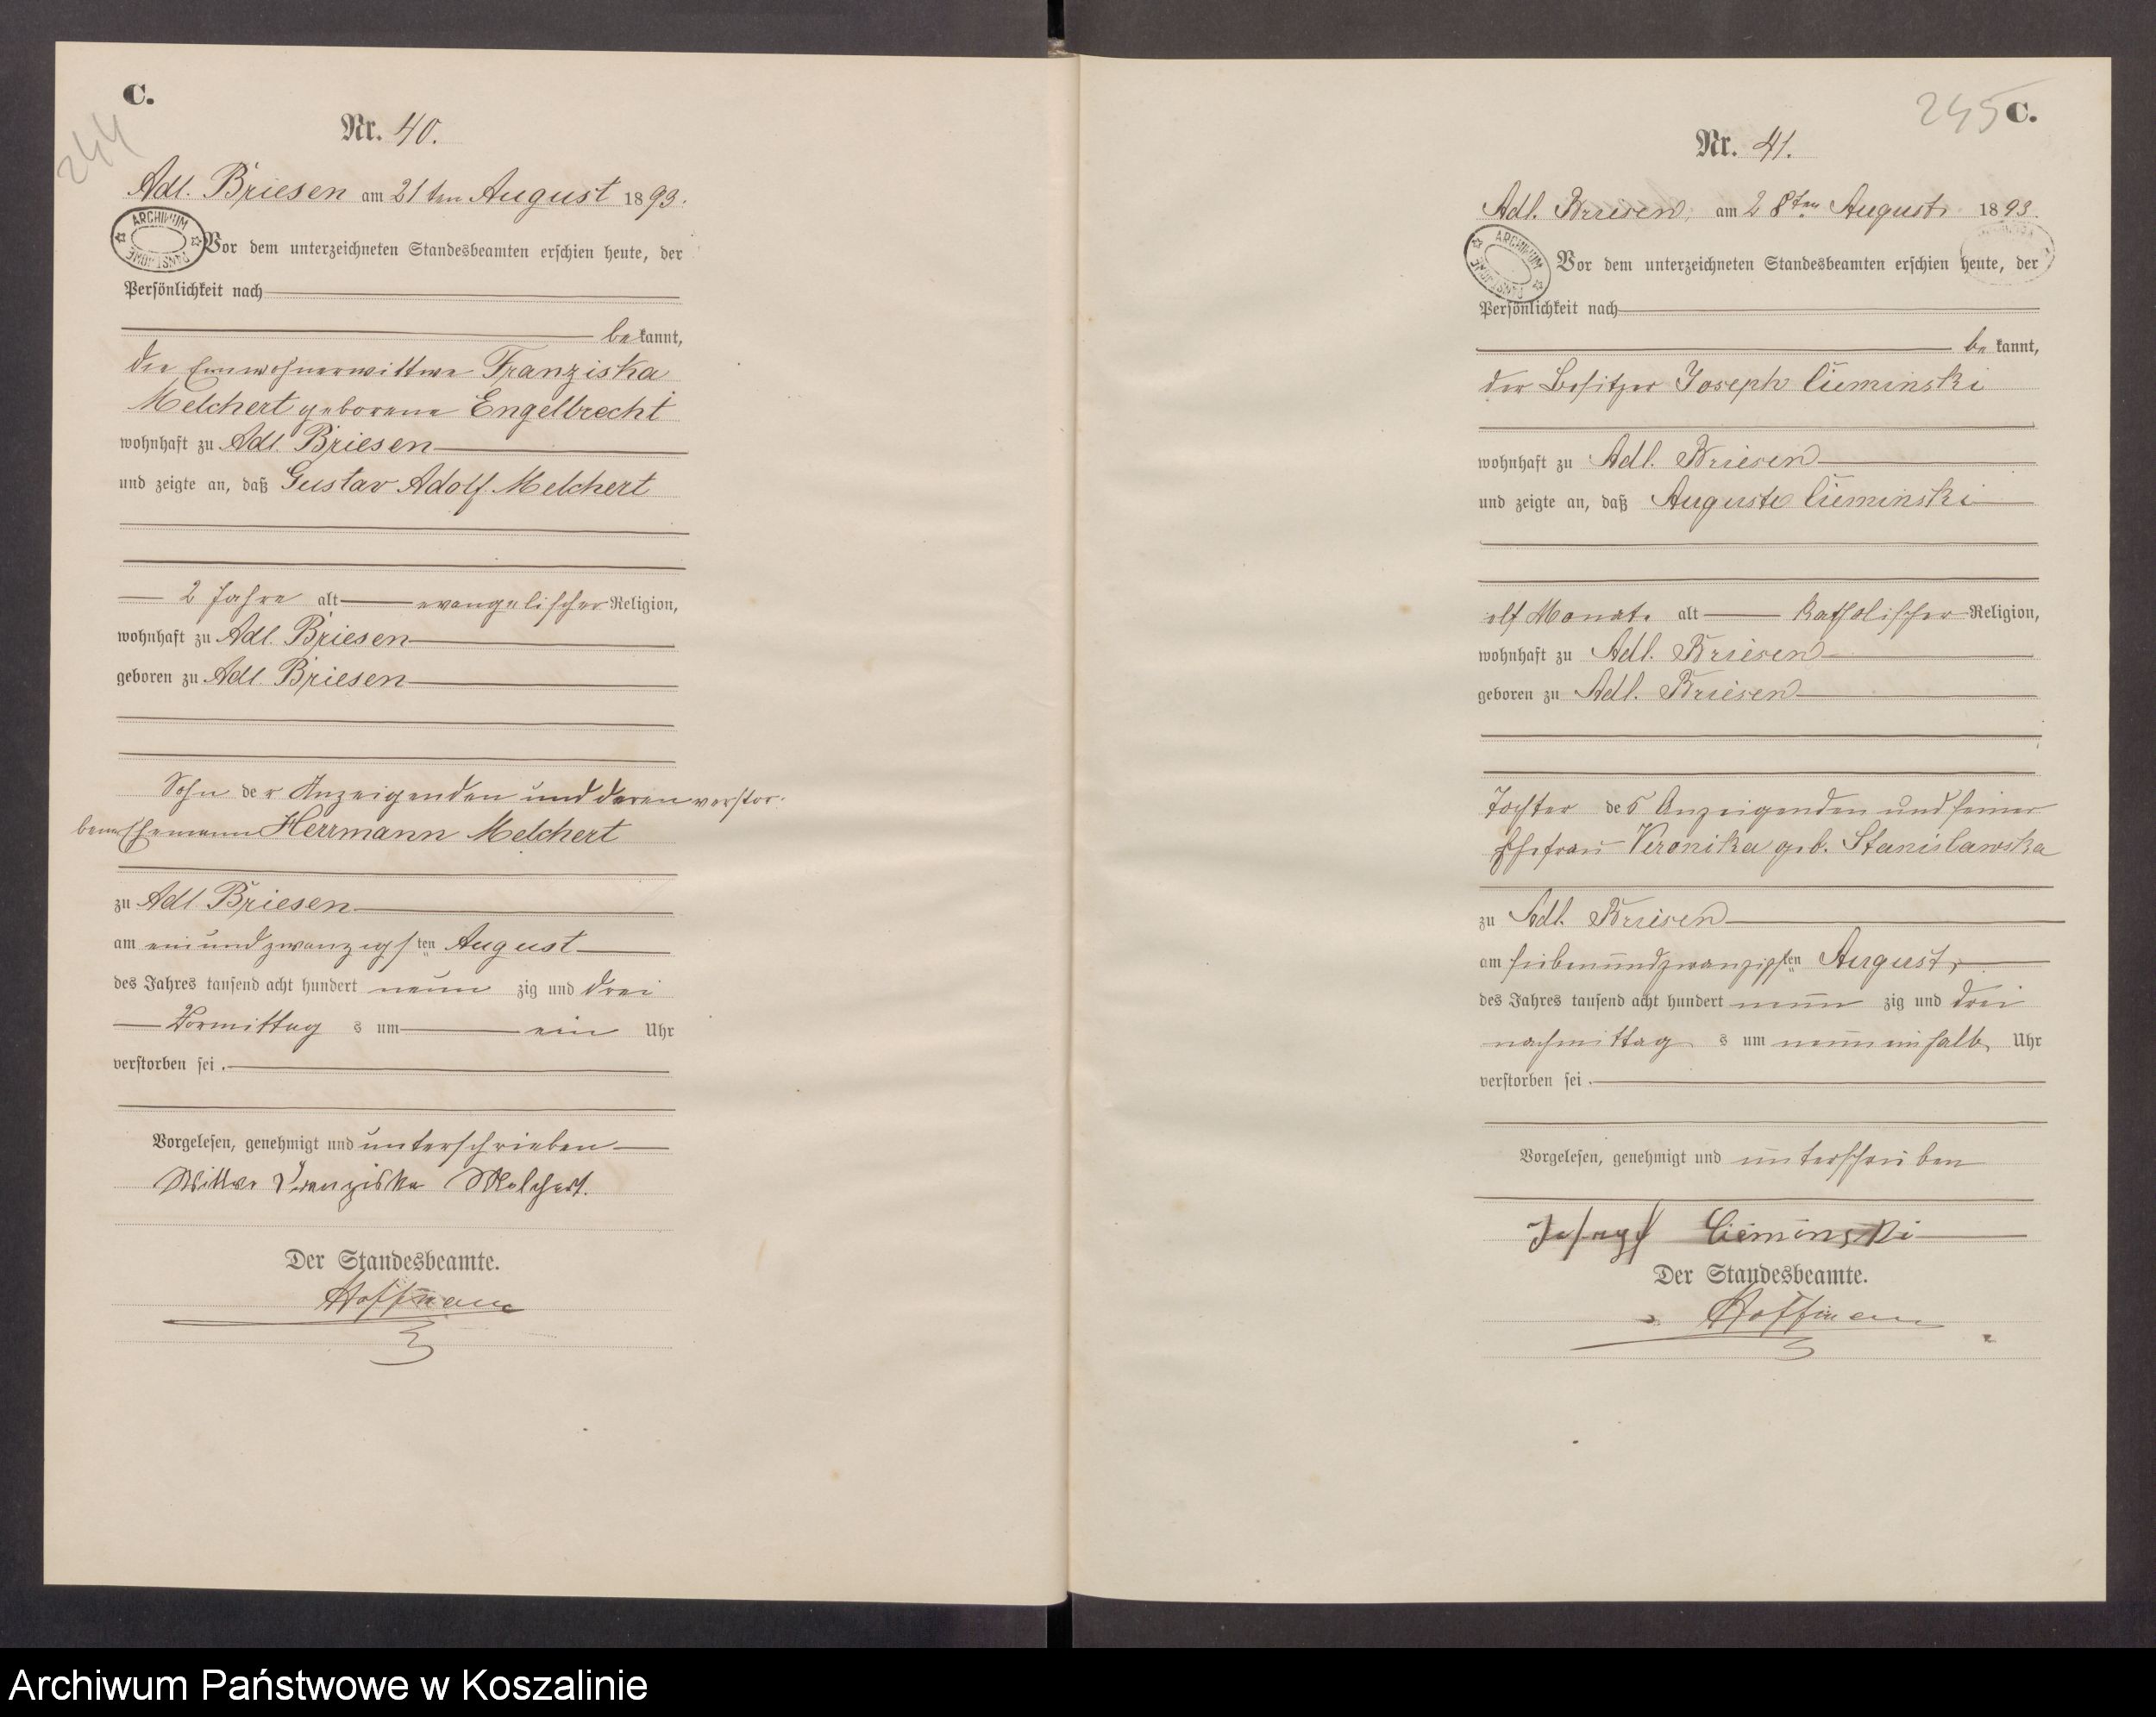 C.
244
Nr. 40.
Adl. Briesen am 21ten August 1893.
ARCHIWUM PAŃSTWOWE
Vor dem unterzeichneten Standesbeamten erschien heute, der
Persönlichkeit nach
bekannt,
die Einwohnerwittwe Franziska
Melchert geborene Engelbrecht
wohnhaft zu Adl. Briesen
und zeigte an, daß Gustav Adolf Melchert
2 Jahre alt evangelischer Religion,
wohnhaft zu Adl. Briesen
geboren zu Adl. Briesen
Sohn der Anzeigenden und deren verstor-
benen Ehemann Herrmann Melchert
zu Adl. Briesen
am einundzwanzigsten August
des Jahres tausend acht hundert neun zig und drei
Vormittag s um ein Uhr
verstorben sei.
Vorgelesen, genehmigt und unterschrieben
Wittwe Franziska Melchert.
Der Standesbeamte.
Hoffmann
245 C.
Nr. 41.
Adl. Briesen, am 28ten August 1893.
ARCHIWUM PAŃSTWOWE
Vor dem unterzeichneten Standesbeamten erschien heute, der
Persönlichkeit nach
bekannt,
der Besitzer Joseph Cieminski
wohnhaft zu Adl. Briesen
und zeigte an, daß Auguste Cieminski
elf Monate alt katholischer Religion,
wohnhaft zu Adl. Briesen
geboren zu Adl. Briesen
Tochter des Anzeigenden und seiner
Ehefrau Veronika geb. Stanislawska
zu Adl. Briesen
am siebenundzwanzigsten August,
des Jahres tausend acht hundert neun zig und drei
nachmittag s um neuneinhalb Uhr
verstorben sei.
Vorgelesen, genehmigt und unterschrieben
Joseph Cieminski
Der Standesbeamte.
Hoffmann
Archiwum Państwowe w Koszalinie